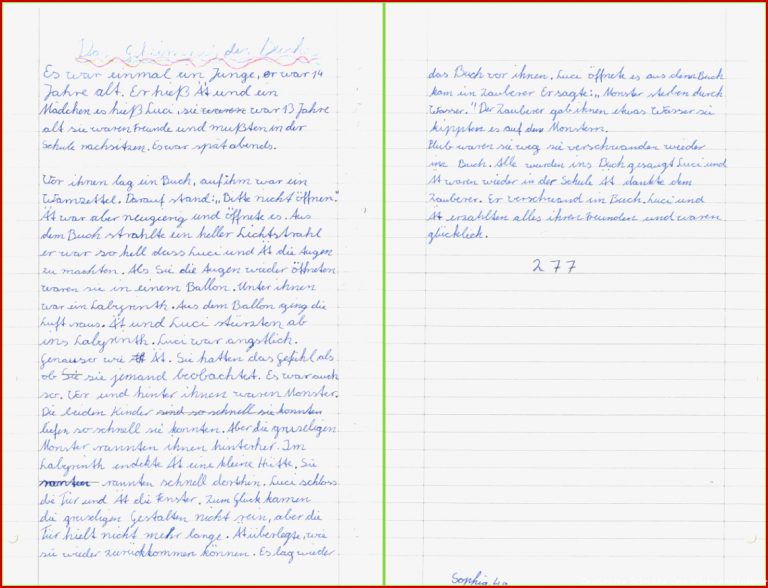 Das Geheimnis des Buchs
Es war einmal ein Junge, er war 14
Jahre alt. Er hieß Ät und ein
Mädchen es hieß Luci, sie waren war 13 Jahre
alt sie waren Freunde und mußten in der
Schule nachsitzen. Es war spät abends.
Vor ihnen lag ein Buch, auf ihm war ein
Warnzettel. Darauf stand: „Bitte nicht öffnen."
Ät war aber neugierig und öffnete es. Aus
dem Buch strahlte ein heller Lichtstrahl
er war so hell dass Luci und Ät die Augen
zu machten. Als Sie die Augen wieder öffneten
waren sie in einem Ballon. Unter ihnen
war ein Labyrinth. Aus dem Ballon ging die
Luft raus. Ät und Luci stürzten ab
ins Labyrinth. Luci war ängstlich.
Genauso wie Ät. Sie hatten das Gefühl als
ob Sie sie jemand beobachtet. Es war auch
so. Vor und hinter ihnen waren Monster.
Die beiden Kinder sind so schnell sie konnten
liefen so schnell sie konnten. Aber die gruseligen
Monster rannten ihnen hinterher. Im
Labyrinth endekte Ät eine kleine Hütte. Sie
rannten rannten schnell dorthin. Luci schloss
die Tür und Ät die Fenster. Zum Glück kamen
die gruseligen Gestalten nicht rein, aber die
Tür hielt nicht mehr lange. Ät überlegte, wie
sie wieder zurückkommen können. Es lag wieder
das Buch vor ihnen. Luci öffnete es aus dem Buch
kam ein Zauberer Er sagte: „Monster sterben durch
Wasser." Der Zauberer gab ihnen etwas Wasser sie
kippten es auf den Monstern.
waren sie weg sie verschwanden wieder
ins Buch. Alle wurden ins Buch gesaugt Luci und
Ät waren wieder in der Schule Ät dankte dem
Zauberer. Er verschwand im Buch. Luci und
Ät erzählten alles ihren freunden und waren
glücklich.
277
Sophia 4a